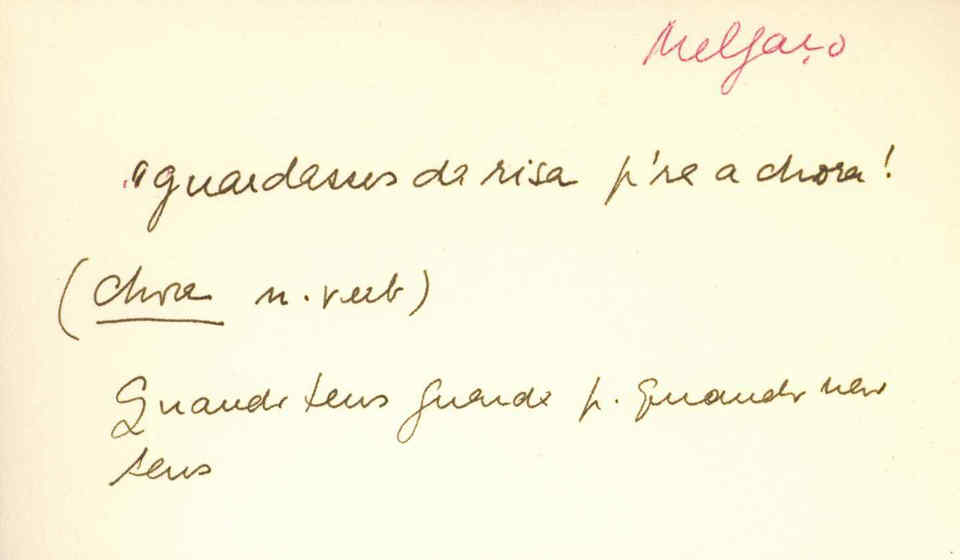 Melgaço
"guardasses da risa p'ra a chora!
(chora n. verb)
Quando tens guarda p. quando non
tens